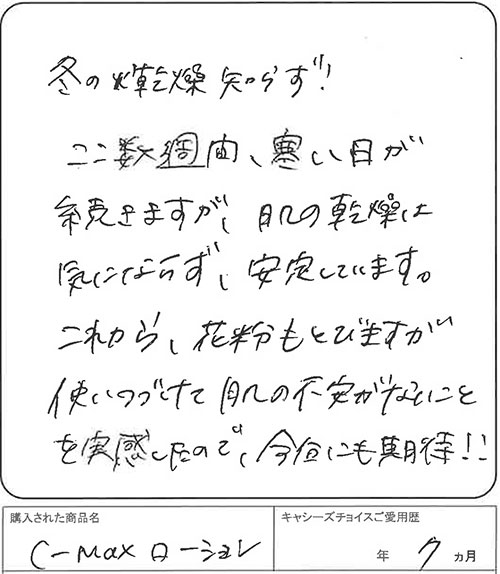 冬の乾燥知らず!
ここ数週間、寒い日が
続きますが、肌の乾燥は
気にならず、安定しています。
これから、花粉もとびますが
使いつづけて肌の不安がないこと
を実感したので、今年にも期待!!
購入された商品名
C-Max ローション
キャシーズチョイスご愛用歴
年 7 ヵ月